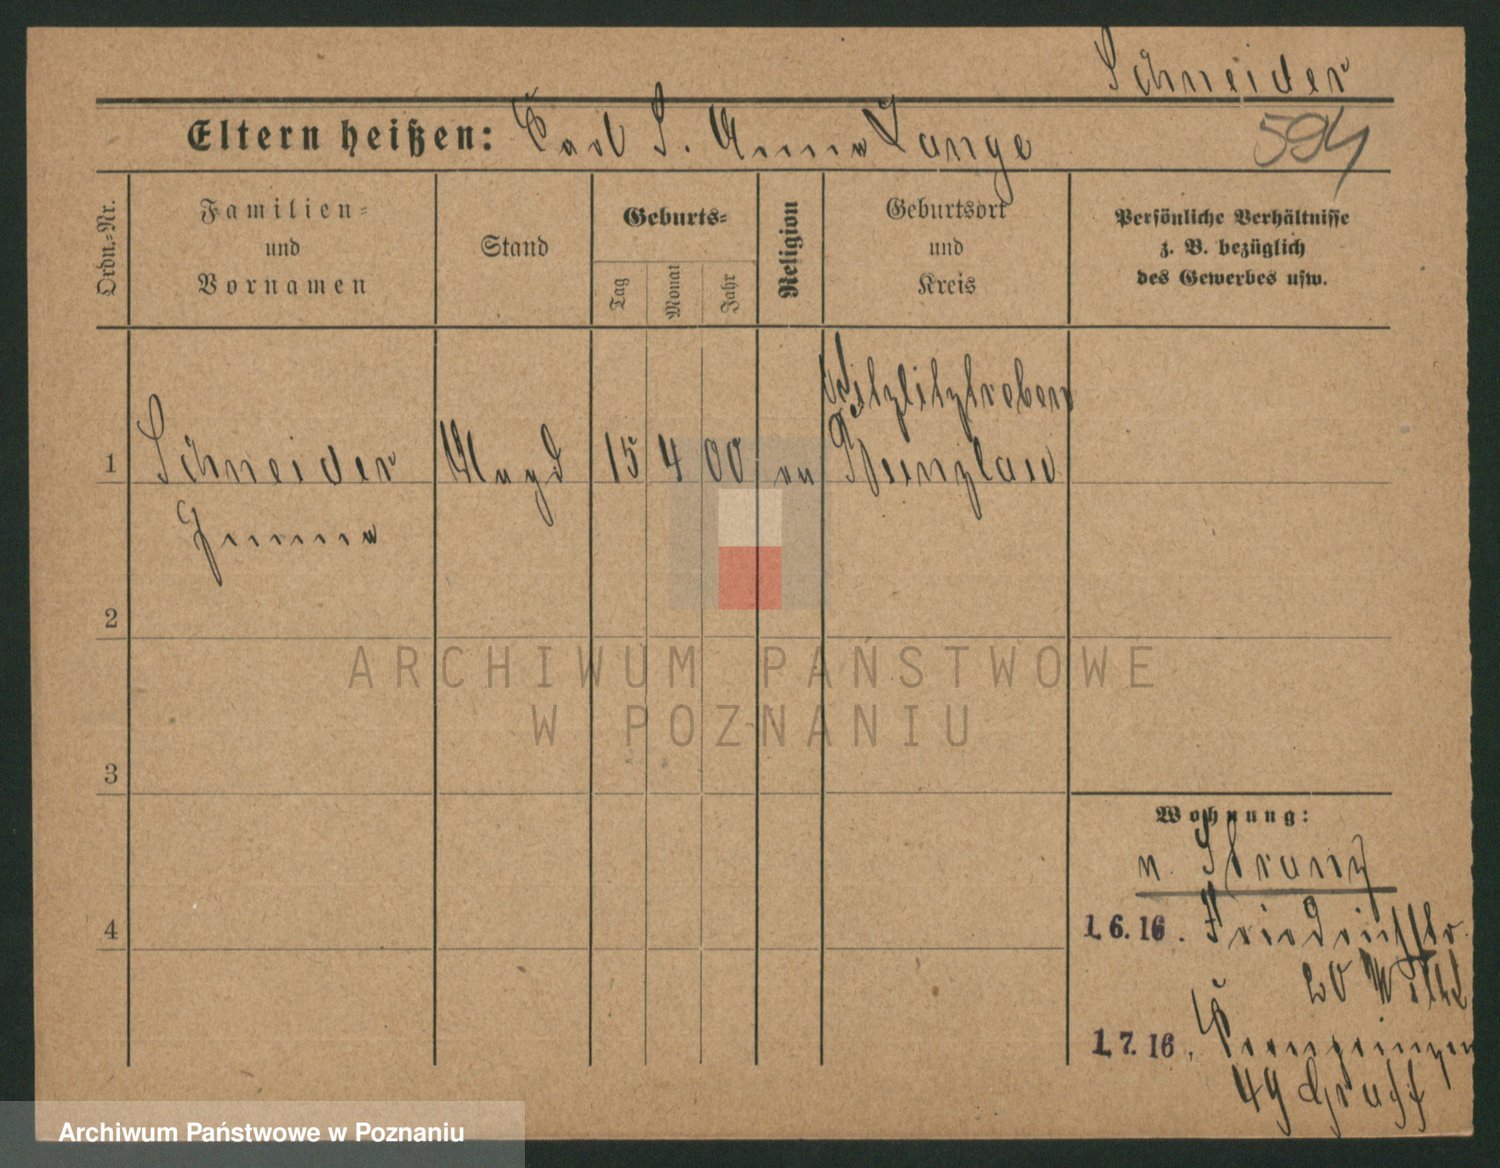 Schneider
Eltern heißen: Carl S. Anna Lange
594
Ordn.-Nr.
Familien-
und
Vornamen
Stand
Geburts-
Tag
Monat
Jahr
Religion
Geburtsort
und
Kreis
Persönliche Verhältnisse
z. B. bezüglich
des Gewerbes usw.
1
Schneider
Magd
15
4
00
ev
Bunzlau
2
3
4
Wohnung:
n.
1. 6. 16. Friedrichstr.
20
1. 7. 16. Kronprinzen
49
ARCHIWUM PAŃSTWOWE
W POZNANIU
Archiwum Państwowe w Poznaniu